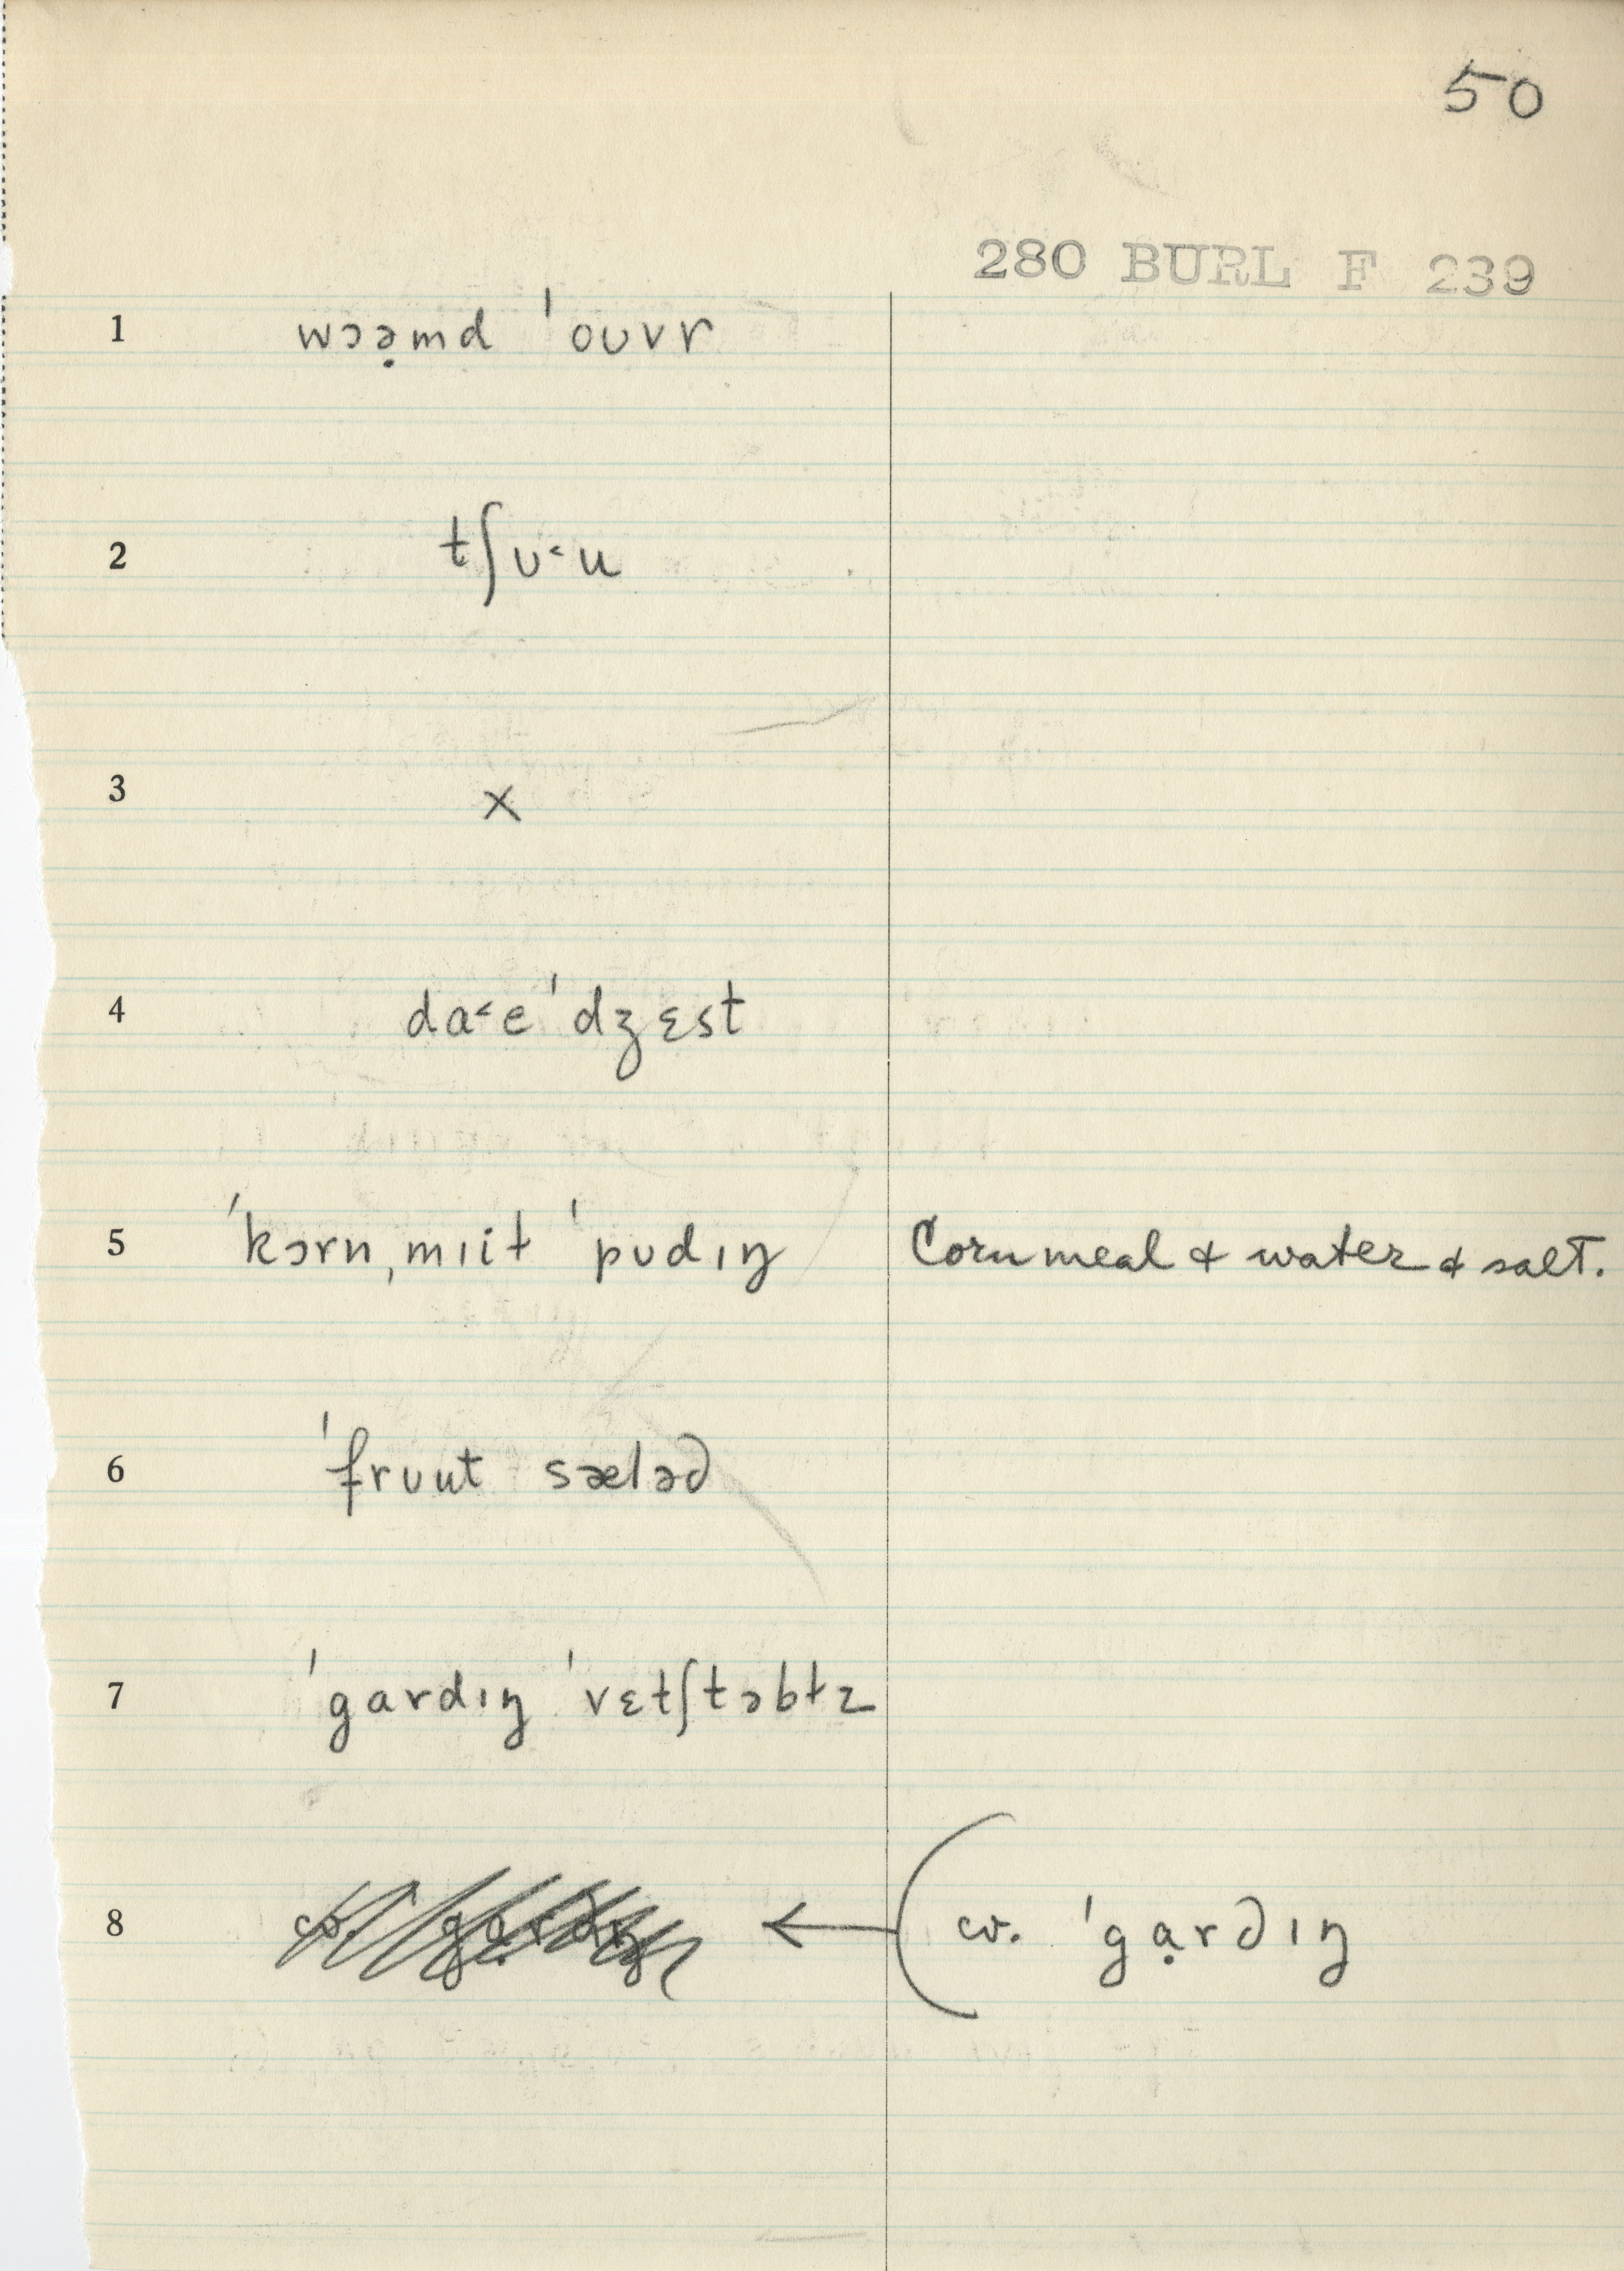 50
280 BURL F 239
1 wɔə̣md ˈoʊvr
2 tʃʊ˂u
3 x
4 da˂eˈdʒɛst
5 ˈkɔrnˌmɪiɫ ˈpʊdɪŋ Corn meal & water & salt.
6 ˈfrʊut sæləd
7 ˈgardɪŋ ˈvɛtʃtəbɫz
8 cv. ˈgạrdɪŋ ← ( cv. ˈgạrdɪŋ